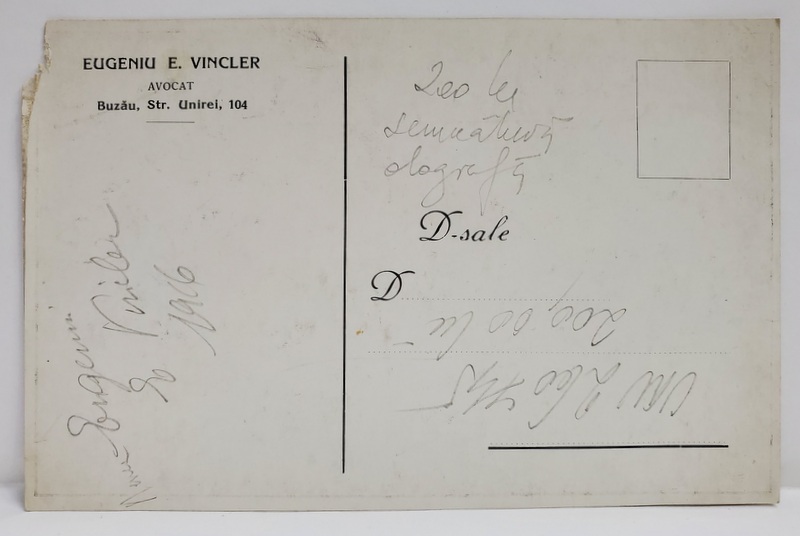 EUGENIU E. VINCLER
AVOCAT
Buzău, Str. Unirei, 104
200 lei
semnătură
olografă
D-sale
D
200,00 lei
Eugeniu
Vincler
1916